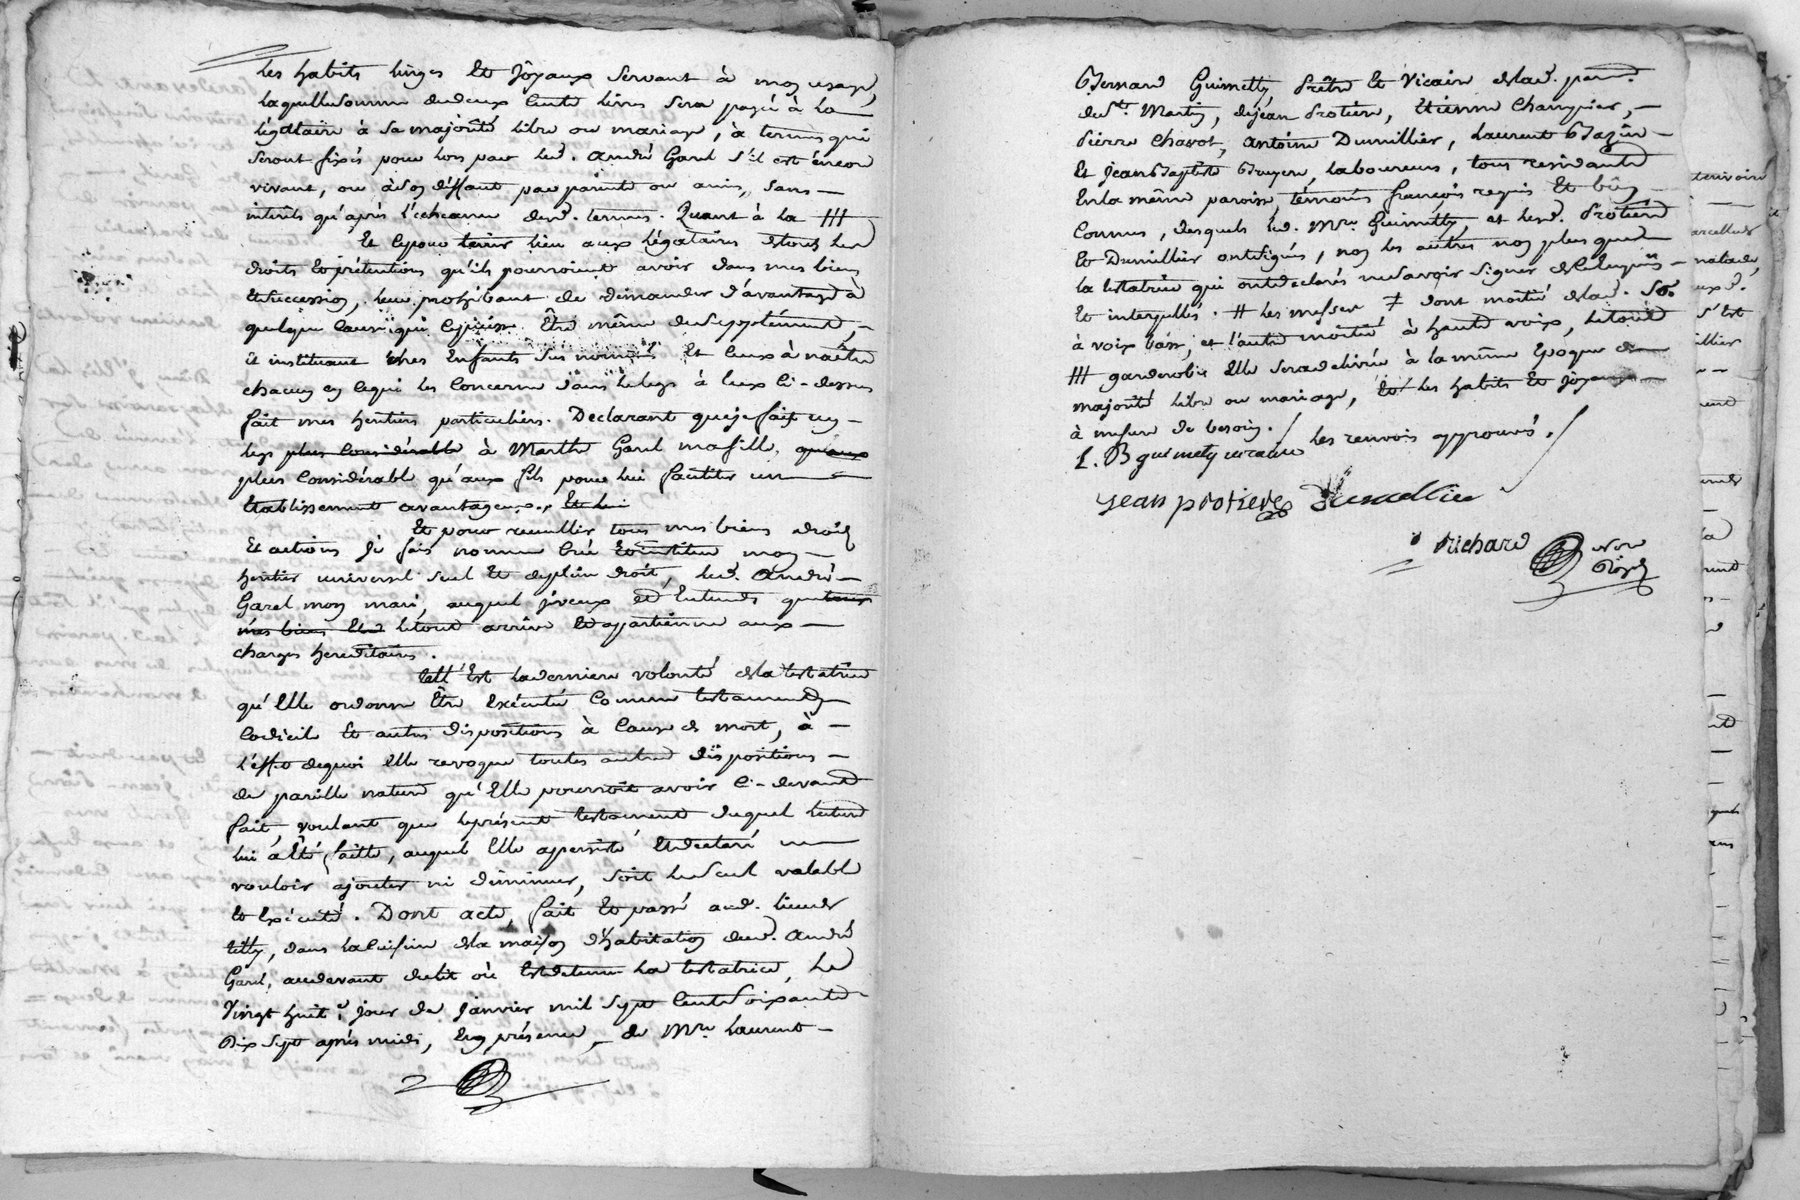 les habits linges et Joyaux servant à mon usage,
laquelle somme de deux cents livres sera payée à la
légataire à sa majorité libre ou mariage, à termes qui
seront fixés pour lors par led. andré Garel s'il est encor
vivant, ou à son déffaut par parents ou amis, sans —
intérêts qu'après l'echeance desd. termes. Quant à la ///
Et ce pour tenir lieu aux légataires de tous les
droits et prétentions qu'ils pourroient avoir dans mes biens
et succession, leur prohibant de demander d'avantage à
quelque cause que ce puisse Être même de supplément, —
et instituant mes Enfants sus nommés et ceux à naître
chacun en ce qui les concerne dans le legs à eux ci-dessus
fait mes heritiers particuliers. Declarant que je fait un —
legs plus considérable à Marthe Garel ma fille, qu'aux
plus considérable qu'aux fils pour lui faciliter un —
Etablissement avantageux., Et lui
Et pour recueillir tous mes biens droits
Et actions Je fais nomme Crée et institue mon —
heritier universel seul et de plein droit, led. André —
Garel mon mari, auquel je veux et Entends que tous
mes biens et le tout arrive et appartienne aux —
charges hereditaires.
telle Est la derniere volonté de la testatrice
qu'Elle ordonne Être Exécuté Comme testament
Codicile et autres dispositions à Cause de mort, à —
l'effet de quoi elle revoque toutes autres dispositions —
de pareille nature qu'Elle pourroit avoir Ci-devant
fait, voulant que le présent testament duquel lecture
lui a Eté faitte, auquel Elle a persisté et declaré n—
vouloir ajouter ni diminuer, soit le seul valable
et Exécuté. Dont acte, fait et passé aud. lieu de
tilly, dans la cuisine de la maison d'habitation dud. André
Garel, au devant du lit où Est detenue la testatrice, le
Vingt huit.e jour de Janvier mil sept Cent soixante
Dix sept après midi, En présence de Mre. Laurent —
Bernard Guimetty Prêtre et Vicaire de lad. par.
de St. Martin, de jean Protiere, Etienne Champier, —
Pierre Chavot, Antoine Dumillier, Laurent Bazin —
Et Jean Baptiste Bruyere, laboureurs, tous residants
En la même paroisse, témoins françois regnis et bien
Connus, desquels led. Mre. Guimetty et lesd. Protiere
et Dumillier ont signés, non les autres non plus que
la testatrice qui ont declarés ne savoir signer de ce enquis —
Et interpellés. # les messes ≠ dont moitié de lad. So.
à voix basse, et l'autre moitié à haute voix, le tout
/// garderobe elle sera delivrée à la même Epoque de
majorité libre ou mariage, et les habits et joyaux —
à mesure de besoin. / les renvois approuvés. /
L. B guimety vicaire
jean protiere Dumellier
Richard Nre
Royal